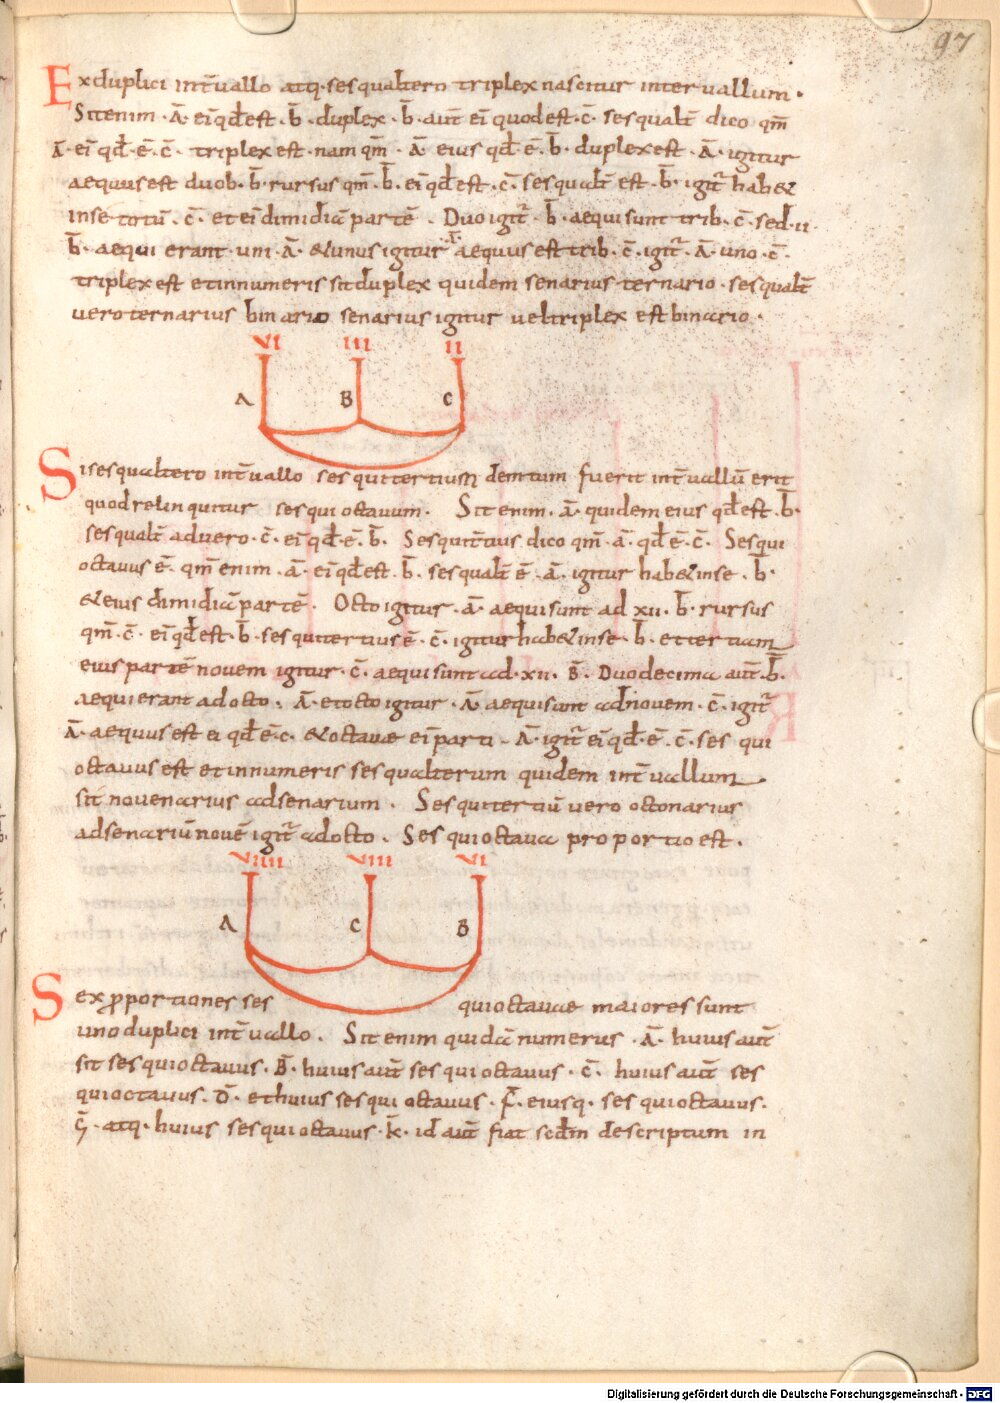 97
Ex duplici int̄uallo atq· sesqualtero triplex nascitur interuallum·
Sit enim ·Ā· ei q̄d est ·b̄· duplex ·b̄· aut̄ ei quod est ·c̄· sesqualt̄ dico qm̄
Ā· ei qd̄ ·ē· c̄· triplex est · nam qm̄ · Ā· eius qd̄ ·ē· b̄· duplex est · Ā· igitur
aequus est duob· b̄· rursus qm̄ · b̄· ei qd̄ est · c̄· sesqualt̄ est · b̄· igit̄ habet
in se totū · c̄· et ei dimidiā partē · Duo igit̄ · b̄· aequi sunt trib· c̄· sed · ii·
b̄· aequi erant · uni · Ā· & unus igitur ·Ā· aequus est trib· c̄· igit̄ · Ā· uno · c̄·
triplex est et in numeris sit duplex quidem senarius ternario · sesqualt̄
uero ternarius binario senarius igitur uel triplex est binario ·
VI III II
A B C
Si sesqualtero int̄uallo sesquitertium demtum fuerit int̄uallū erit
quod relinquitur sesquioctauum · Sit enim · ā· quidem eius qd̄ est · b̄·
sesqualt̄ ad uero · c̄· ei qd̄ · ē· b̄· Sesquit̄tius dico qm̄ · ā· qd̄ ē · c̄· Sesqui
octauus ē· qm̄ enim · ā· ei qd̄ est · b̄· sesqualt̄ ē · ā· igitur hab& in se · b̄·
& eius dimidiā partē · Octo igitur · ā· aequi sunt ad xii· b̄· rursus
qm̄ · c̄· ei qd̄ est · b̄· sesquitertius ē· c̄· igitur hab& in se · b̄· et tertiam
eius partē nouem igitur · c̄· aequi sunt ad · xii· B̄· Duodecim aut̄ · b̄·
aequi erant ad octo · Ā· et octo igitur · Ā· aequi sunt ad nouem · c̄· igit̄
Ā· aequus est ei qd̄ ē· c· & octauae ei parti · Ā· igit̄ ei qd̄ · ē· c̄· ses qui
octauus est et in numeris sesqualterum quidem int̄uallum
sit nouenarius ad senarium · Sesquitertiū uero octonarius
ad senariū nouē igit̄ ad octo · Sesquioctaua proportio est ·
VIIII VIII VI
A C B
Sex p̄portiones ses quioctauae maiores sunt
uno duplici int̄uallo · Sit enim quidā numerus · Ā· huius aut̄
sit sesquioctauus · B̄· huius aut̄ sesquioctauus · c̄· huius aut̄ ses
quioctauus · D̄· et huius sesquioctauus · F̄· eiusq· sesquioctauus·
Ḡ· atq· huius sesquioctauus · k̄· id aut̄ fiat scd̄m descriptum in
Digitalisierung gefördert durch die Deutsche Forschungsgemeinschaft · DFG